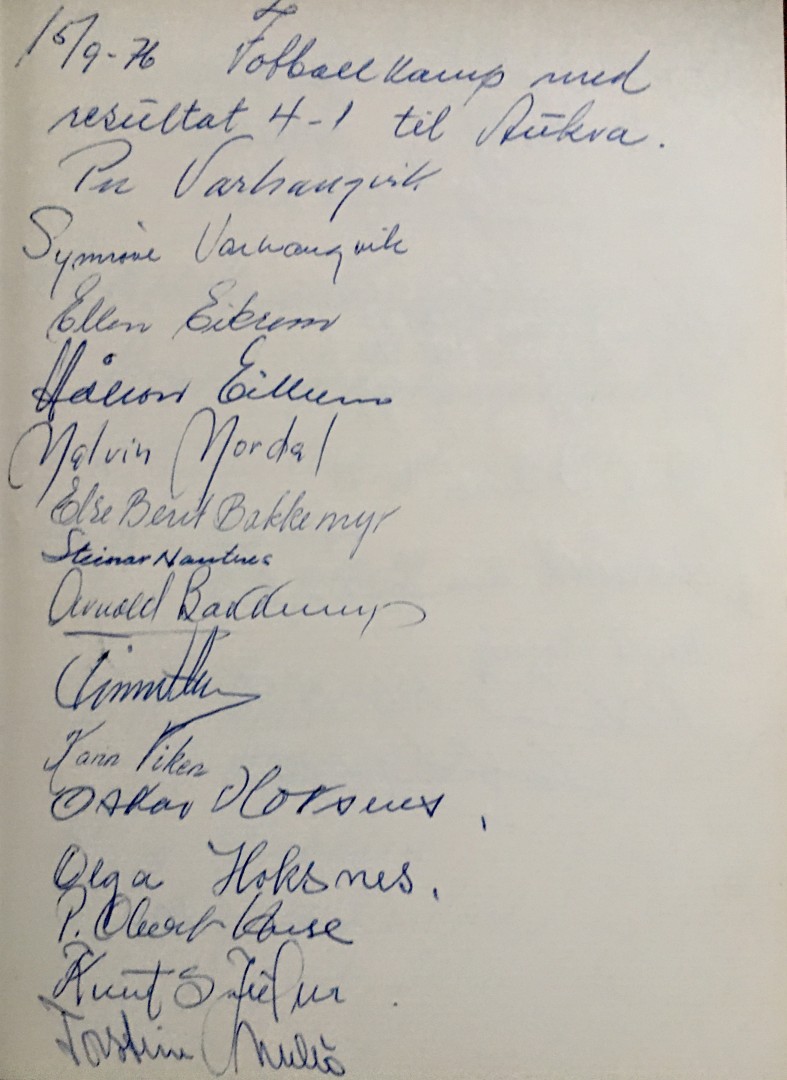 15/9-76 Fotballkamp med
resultat 4-1 til Aukva.
Per Varhaugvik
Synnøve Varhaugvik
Ellen Eikrem
Håkon Eikrem
Malvin Nordal
Else Berit Bakkemyr
Steinar
Arnold
Karin Viken
Oskar Hoksnes,
Olga Hoksnes.
P.
Knut S
Torstein